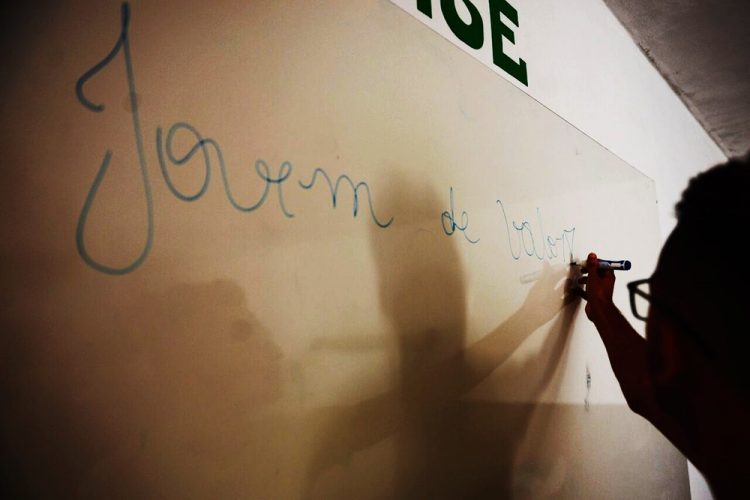 GE
Jovem de valor